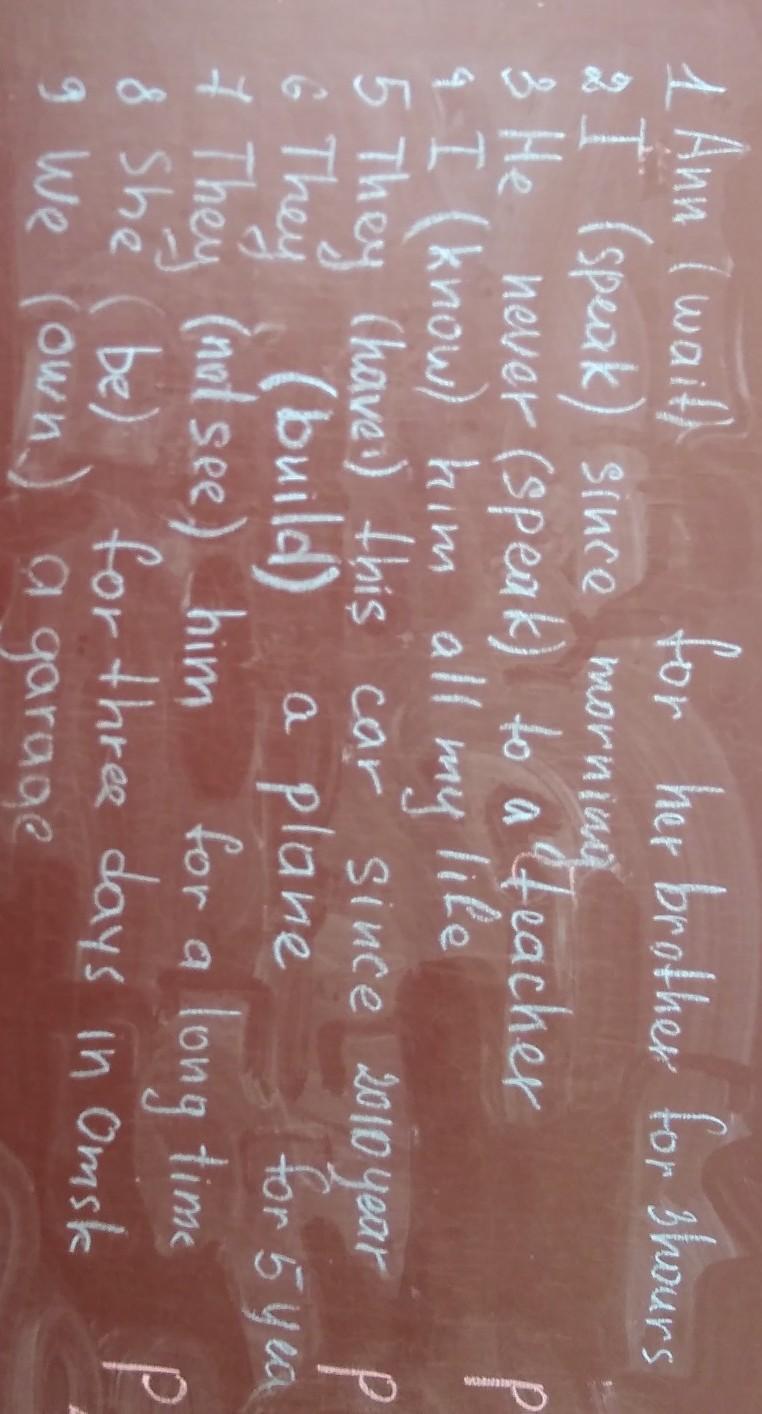 1 Ann (wait) for her brother for 3 hours
2 I (speak) since morning
3 He never (speak) to a teacher
4 I (know) him all my life
5 They (have) this car since 2010 year
6 They (build) a plane for 5 yea
7 They (not see) him for a long time
8 She (be) for three days in Omsk
9 We (own) a garage
P
P
P